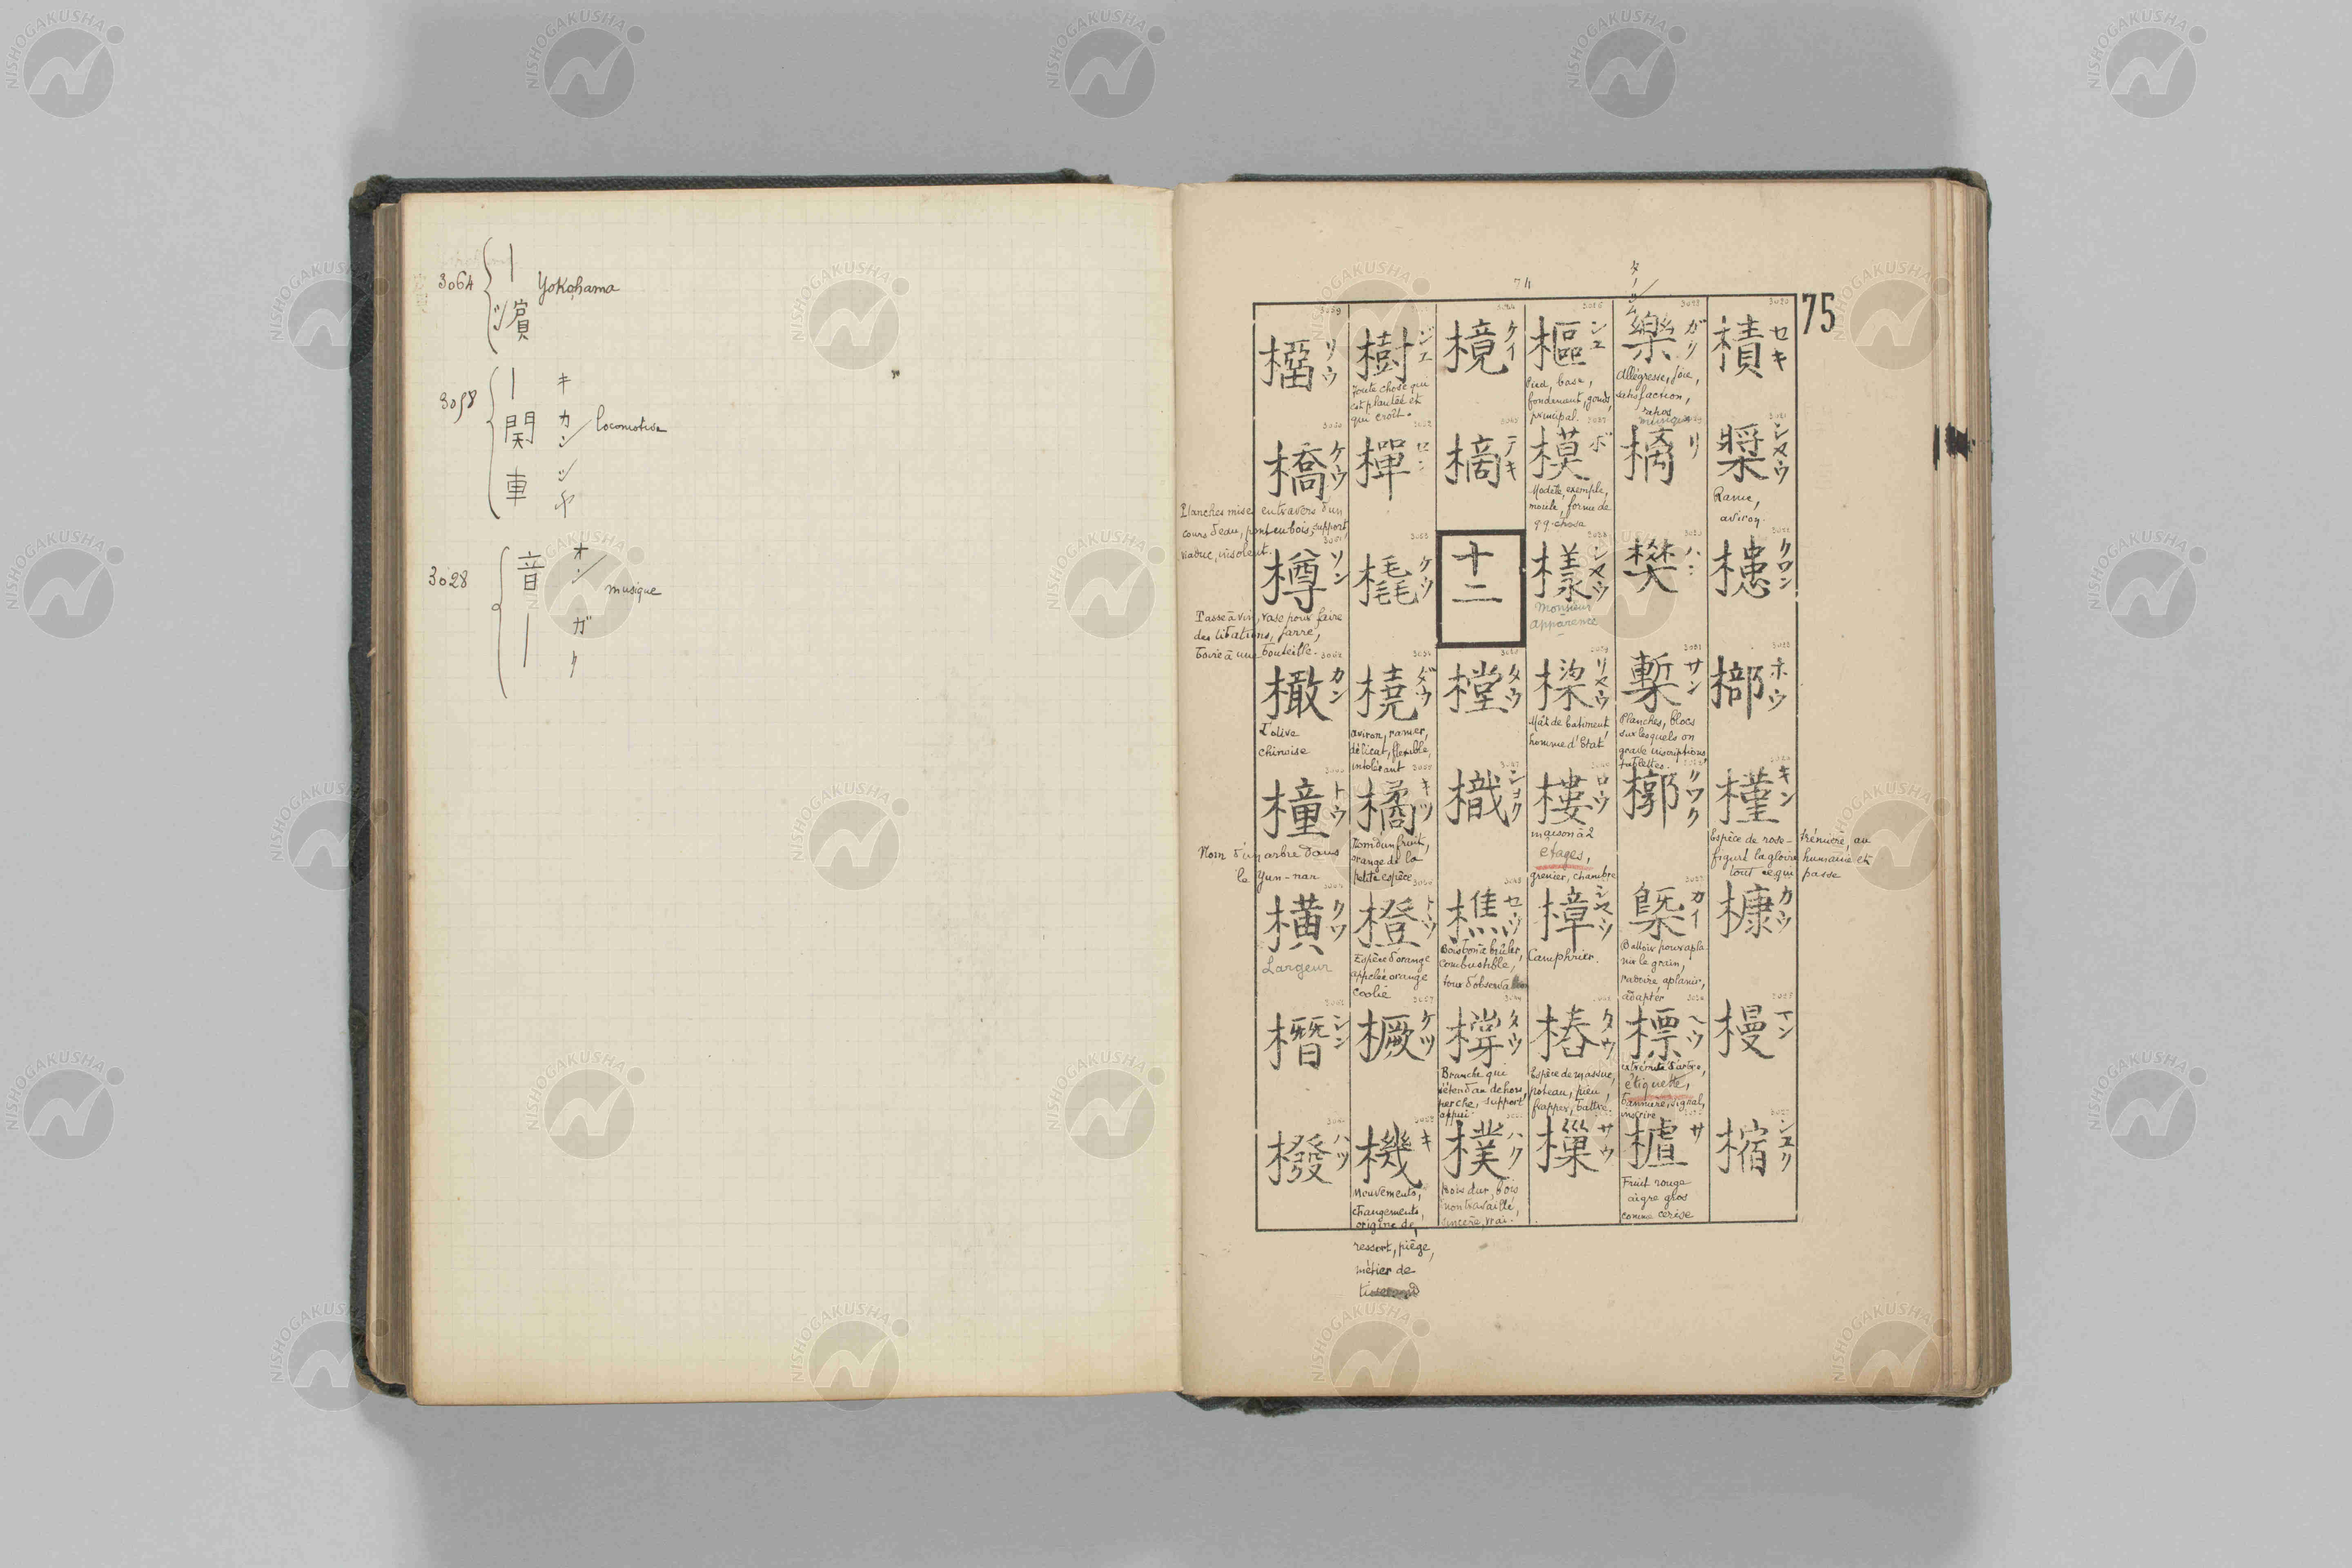 3064
｜
濱
Yokohama
3058
｜
関
車
キ
カン
シ
ヤ
locomotive
3028
音
｜
オン
ガ
ク
musique
75
74
積
セキ
槳
シヤウ
Rame,
aviron.
樬
槨
ホウ
槿
キン
Espèce de rose-trémière, au
figuré la gloire humaine et
tout ce qui passe
槺
カウ
槾
マン
樎
シユク
樂
ガク
Allégresse, joie,
satisfaction,
repos
musique
樆
リ
樊
ハン
槧
サン
Planches, blocs
sur lesquels on
grave inscriptions
tablettes.
槨
クワク
槩
カイ
Battoir pour apla-
nir le grain,
aplanir,
adapter
標
ヘウ
extrémité d'arbre,
étiquette,
bannière, signal,
inscrire
樝
サ
Fruit rouge
aigre gros
comme cerise
樞
シユ
Pied, base,
fondement, gonds,
principal.
模
ボ
Modèle, exemple,
moule, forme de
q.q. chose
樣
シヤウ
Monsieur
apparence
樑
リヤウ
Mât de batiment
homme d'Etat
樓
ロウ
maison à 2
étages,
grenier, chambre
樟
シヤウ
Camphrier.
樁
タウ
Espèce de massue,
poteau, pieu,
frapper, battre.
樔
サウ
樈
ケイ
樀
テキ
十二
樘
タウ
樴
シヨク
樵
セウ
Bois bon à brûler,
combustible,
tour d'observa
橕
タウ
Branche qui
s'étend au dehors,
perche, support
appui.
樸
ハク
Bois dur, bois
non travaillé,
sincère, vrai.
樹
ジユ
Toute chose qui
est plantée et
qui croît.
樿
橇
ケウ
橈
ダウ
aviron, ramer,
délicat, flexible,
intolérant
橘
キツ
Nom d'un fruit,
orange de la
petite espèce
橙
トウ
Espèce d'orange
appelée orange
coolie
橛
ケツ
機
キ
Mouvements,
changements,
origine de,
ressort, piège,
métier de
tisserand
橊
リウ
橋
ケウ
Planches mises en travers d'un
cours d'eau, pont en bois, support,
viaduc, insolent.
樽
ソン
Tasse à vin, vase pour faire
des libations, jarre,
boire à une bouteille.
橄
カン
L'olive
chinoise
橦
トウ
Nom d'un arbre dans
le Yun-nan
横
クワウ
Largeur
橬
シン
橃
ハツ
NISHOGAKUSHA